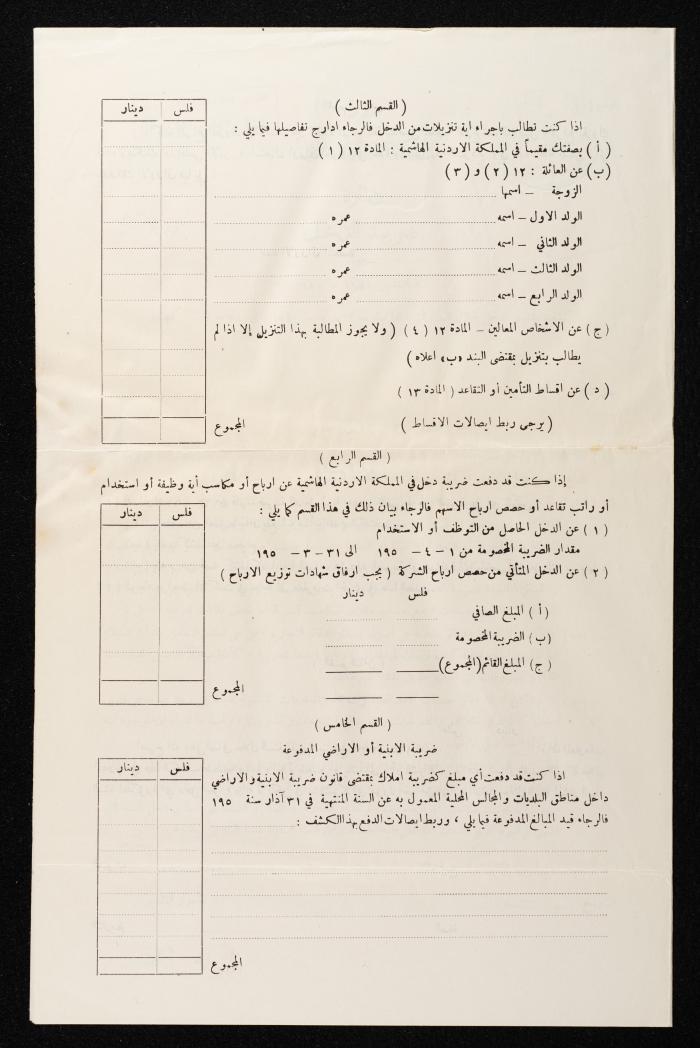 ( القسم الثالث )
فلس دينار
اذا كنت تطالب باجراء اية تنزيلات من الدخل فالرجاء ادارج تفاصيلها فيما يلي :
( أ ) بصفتك مقيماً في المملكة الاردنية الهاشمية : المادة ١٢ ( ١ )
(ب) عن العائلة : ١٢ ( ٢ ) و ( ٣ )
الزوجة – اسمها
الولد الاول – اسمه عمره
الولد الثاني – اسمه عمره
الولد الثالث – اسمه عمره
الولد الرابع – اسمه عمره
( ج ) عن الاشخاص المعالين – المادة ١٢ ( ٤ ) ( ولا يجوز المطالبة بهذا التنزيل إلا اذا لم
يطالب بتنزيل بمقتضى البند «ب» اعلاه )
( د ) عن اقساط التأمين أو التقاعد ( المادة ١٣ )
( يرجى ربط ايصالات الاقساط )
المجموع
( القسم الرابع )
إذا كنت قد دفعت ضريبة دخل في المملكة الاردنية الهاشمية عن ارباح أو مكاسب أية وظيفة أو استخدام
أو راتب تقاعد أو حصص ارباح الاسهم فالرجاء بيان ذلك في هذا القسم كما يلي :
فلس دينار
( ١ ) عن الدخل الحاصل من التوظف أو الاستخدام
مقدار الضريبة المخصومة من ١ – ٤ – ١٩٥ الى ٣١ – ٣ – ١٩٥
( ٢ ) عن الدخل المتأتي من حصص ارباح الشركة ( يجب ارفاق شهادات توزيع الارباح )
فلس دينار
( أ ) المبلغ الصافي
(ب) الضريبة المخصومة
( ج ) المبلغ القائم (المجموع)
المجموع
( القسم الخامس )
ضريبة الابنية أو الاراضي المدفوعة
فلس دينار
اذا كنت قد دفعت أي مبلغ كضريبة املاك بمقتضى قانون ضريبة الابنية والاراضي
داخل مناطق البلديات والمجالس المحلية المعمول به عن السنة المنتهية في ٣١ آذار سنة ١٩٥
فالرجاء قيد المبالغ المدفوعة فيما يلي ، وربط ايصالات الدفع بهذا الكشف :
المجموع